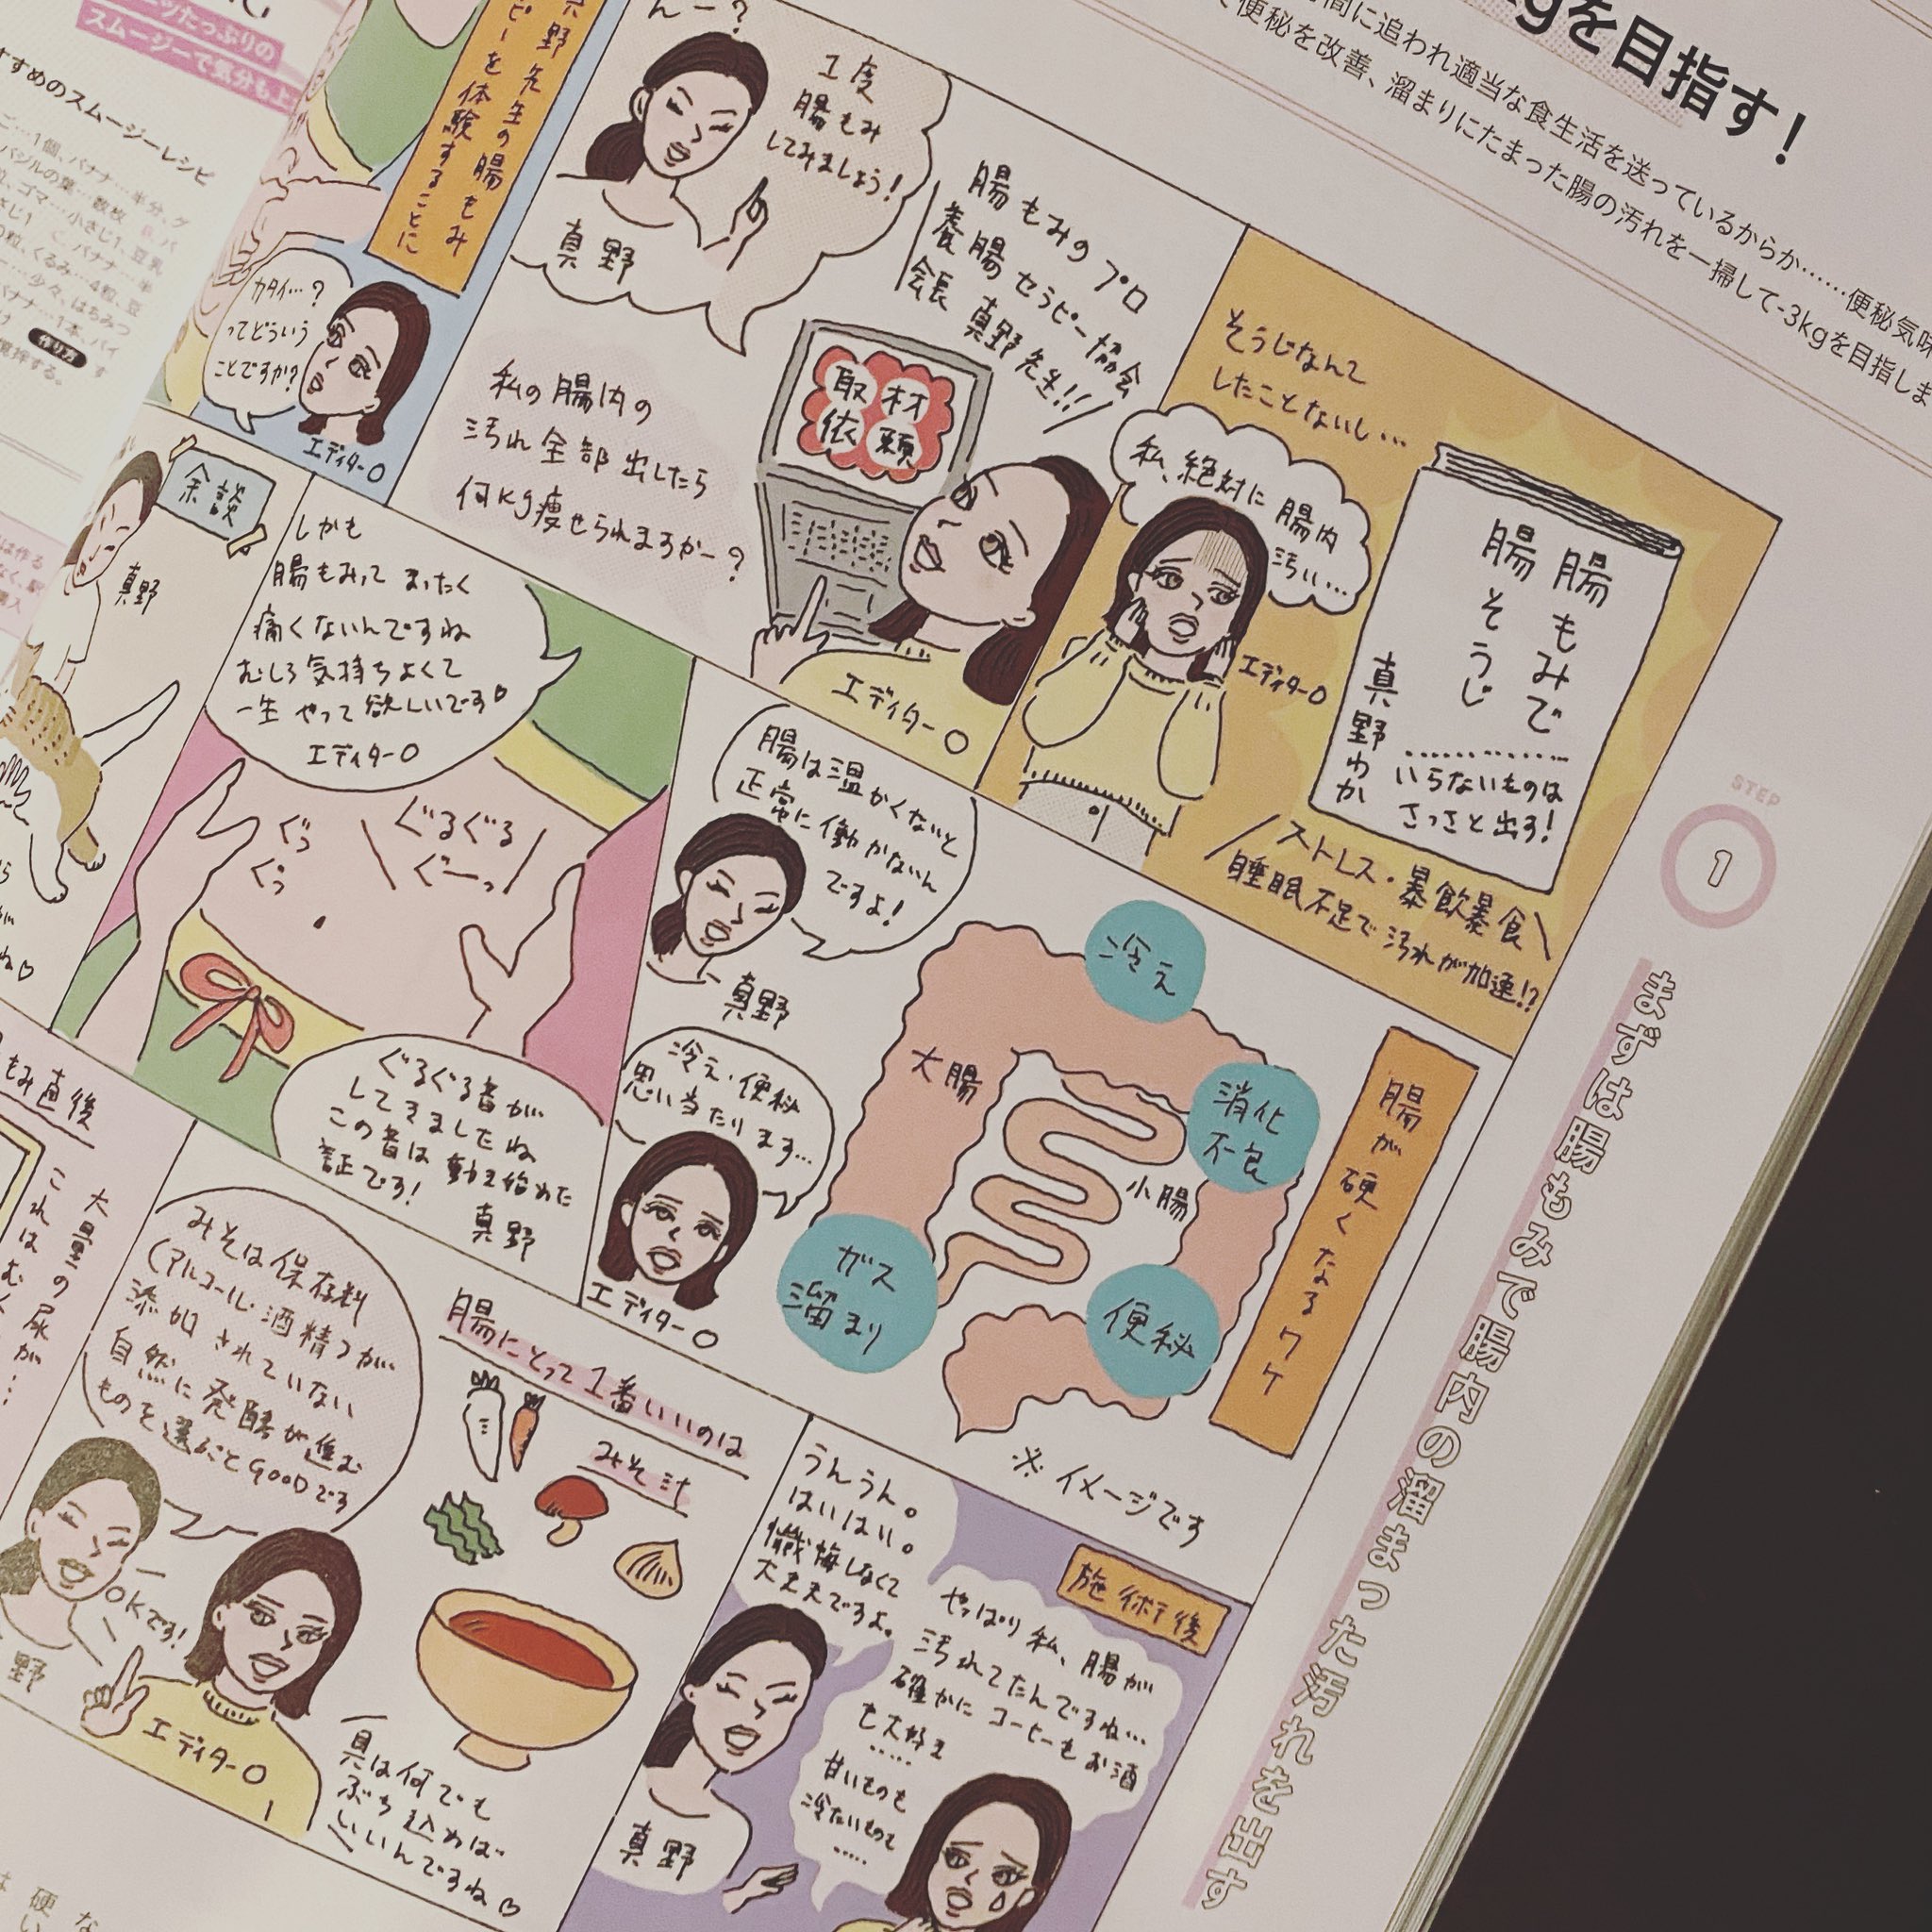 kgを目指す！
間に追われ適当な食生活を送っているからか……便秘気味
便秘を改善、溜まりにたまった腸の汚れを一掃して-3kgを目指しま
STEP
1
まずは腸もみで腸内の溜まった汚れを出す
そうじなんて
したことないし…
私、絶対に腸内
汚い…
エディターO
腸もみで
腸そうじ
真野わか
いらないものは
さっさと出す!
ストレス・暴飲暴食
睡眠不足で汚れが加速!?
腸もみのプロ
養腸セラピー協会
会長 真野先生!!
1度
腸もみ
してみましょう!
真野
取材
依頼
私の腸内の
汚れ全部出したら
何kg痩せられますかー?
エディターO
先生の腸もみ
ピーを体験することに
カタイ…?
ってどういう
ことですか?
エディターO
腸が硬くなるワケ
冷え
消化
不良
便秘
ガス
溜まり
大腸
小腸
※イメージです
腸は温かくないと
正常に働かないん
ですよ!
真野
冷え・便秘
思い当たります…
エディターO
しかも
腸もみって まったく
痛くないんですね
むしろ気持ちよくて
一生 やって欲しいです♡
エディターO
ぐっ
ぐっ
ぐるぐる
ぐーっ
ぐるぐる音が
してきましたね
この音は動き始めた
証です!
真野
余談
真野
施術後
やっぱり私、腸が
汚れてたんですね…
確かに コーヒーもお酒
も大好き
……
甘いものも
冷たいものも
……
うんうん。
はいはい。
懺悔しなくて
大丈夫ですよ。
真野
腸にとって1番いいのは
みそ汁
みそは保存料
(アルコール・酒精)が
添加されていない
自然に発酵が進む
ものを選ぶとGOODです
OKです!
野
エディターO
具は何でも
ぶち込めば
いいんですね♡
もみ直後
大量の尿が…
これはむく
スムージーで気分も上
すすめのスムージーレシピ
作り方